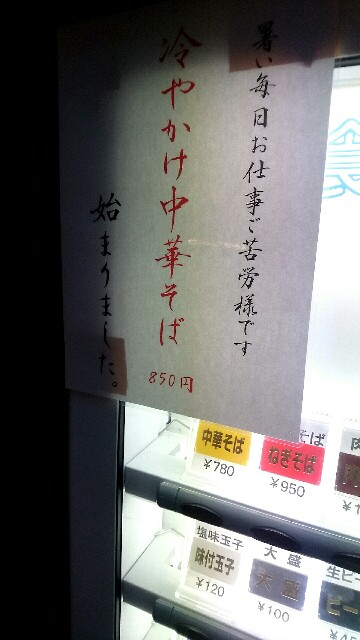 暑い毎日お仕事ご苦労様です
冷やかけ中華そば
850円
始まりました。
中華そば
¥780
そば
ねぎそば
¥950
肉
塩味玉子
味付玉子
¥120
大盛
大盛
¥100
生ビー
ビー